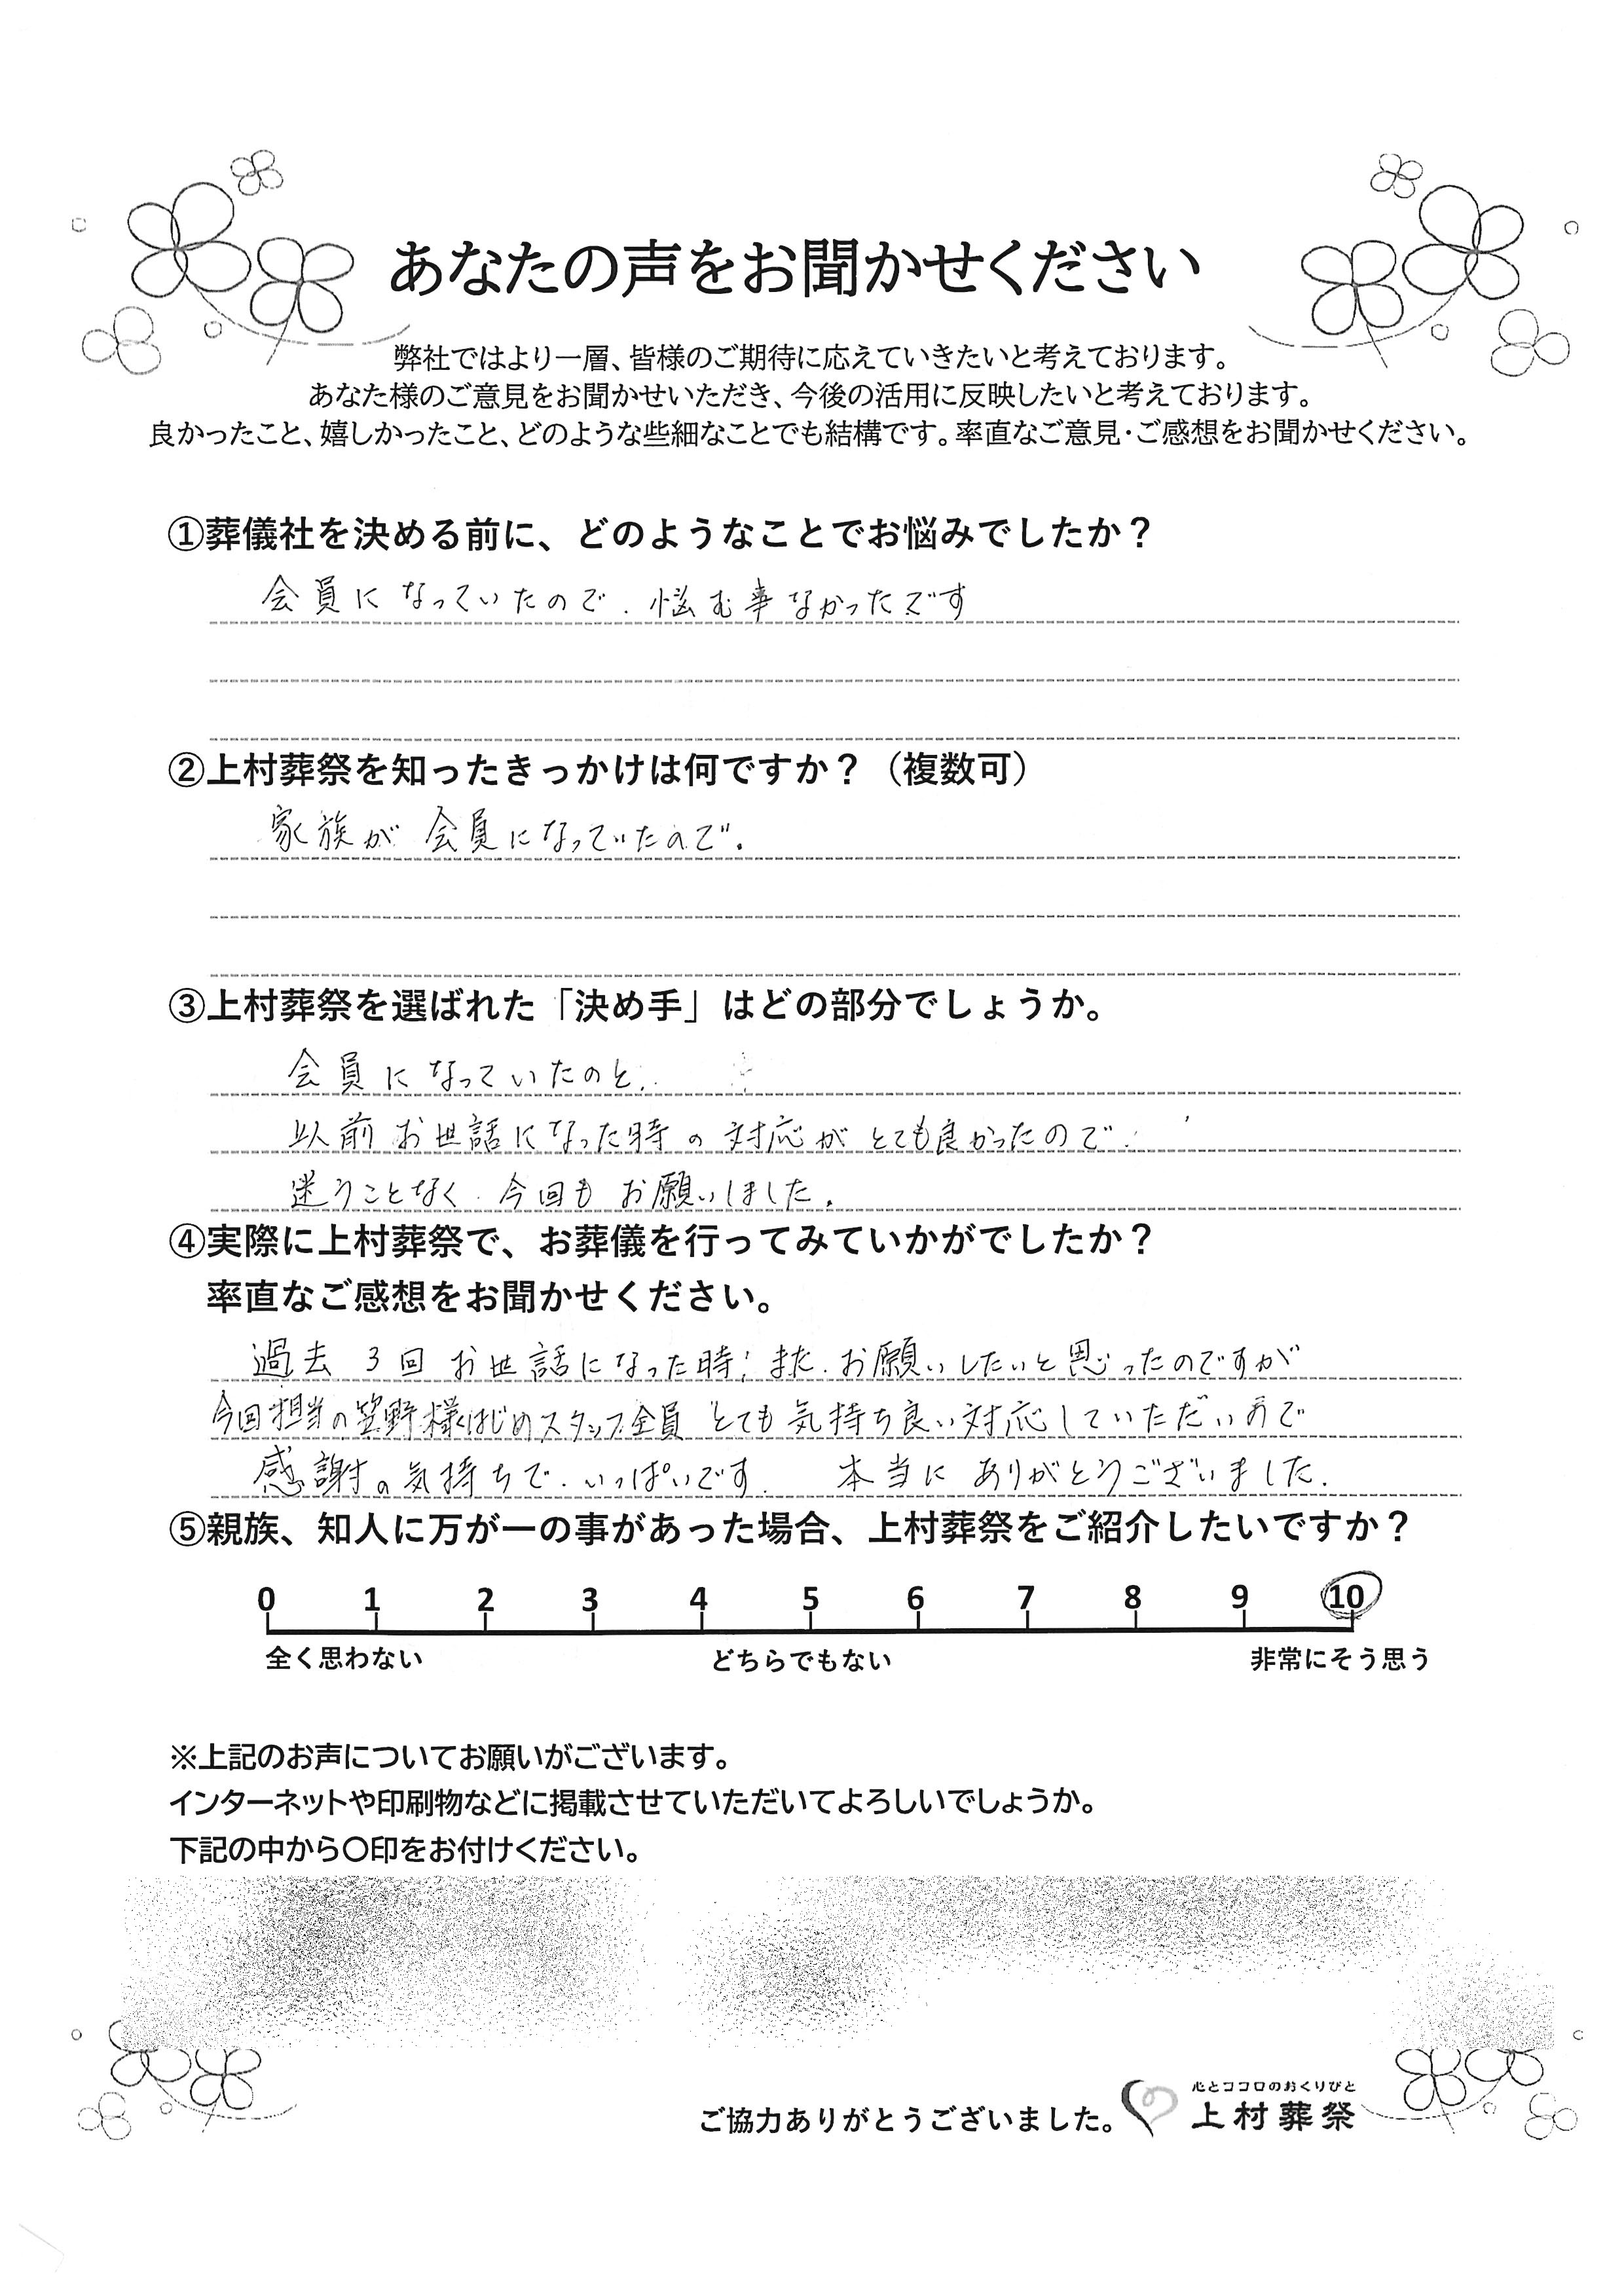 あなたの声をお聞かせください
弊社ではより一層、皆様のご期待に応えていきたいと考えております。
あなた様のご意見をお聞かせいただき、今後の活用に反映したいと考えております。
良かったこと、嬉しかったこと、どのような些細なことでも結構です。率直なご意見・ご感想をお聞かせください。
①葬儀社を決める前に、どのようなことでお悩みでしたか？
会員になっていたので.悩む事なかったです
②上村葬祭を知ったきっかけは何ですか？（複数可）
家族が会員になっていたので.
③上村葬祭を選ばれた「決め手」はどの部分でしょうか。
会員になっていたのと.
以前お世話になった時の対応がとても良かったので.
迷うことなく.今回もお願いしました.
④実際に上村葬祭で、お葬儀を行ってみていかがでしたか？
率直なご感想をお聞かせください。
過去3回お世話になった時.また.お願いしたいと思ったのですが
今回担当の笠野様はじめスタッフ全員とても気持ち良い対応していただいので
感謝の気持ちで.いっぱいです. 本当にありがとうございました.
⑤親族、知人に万が一の事があった場合、上村葬祭をご紹介したいですか？
0 1 2 3 4 5 6 7 8 9 10
全く思わない どちらでもない 非常にそう思う
※上記のお声についてお願いがございます。
インターネットや印刷物などに掲載させていただいてよろしいでしょうか。
下記の中から〇印をお付けください。
心とココロのおくりびと
ご協力ありがとうございました。 上村葬祭